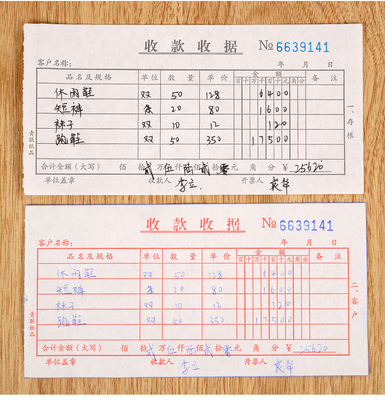 收款收据 №6639141
客户名称： 年 月 日
品名及规格 单位 数量 单价 金额 百十万千百十元角分 备注
休闲鞋 双 50 128 6400
短裤 条 20 80 1600
袜子 双 10 12 120
跑鞋 双 50 350 17500
合计金额（大写） 佰 拾贰万伍仟陆佰贰拾零元 角 分 ¥25620
单位盖章 收款人 李立 开票人
一：存根
青联纸品
收款收据 №6639141
客户名称： 年 月 日
品名及规格 单位 数量 单价 金额 百十万千百十元角分 备注
休闲鞋 双 50 128 6400
短裤 条 20 80 1600
袜子 双 10 12 120
跑鞋 双 50 350 17500
合计金额（大写） 佰 拾贰万伍仟陆佰贰拾零元 角 分 ¥25620
单位盖章 收款人 李立 开票人
二：客户
青联纸品